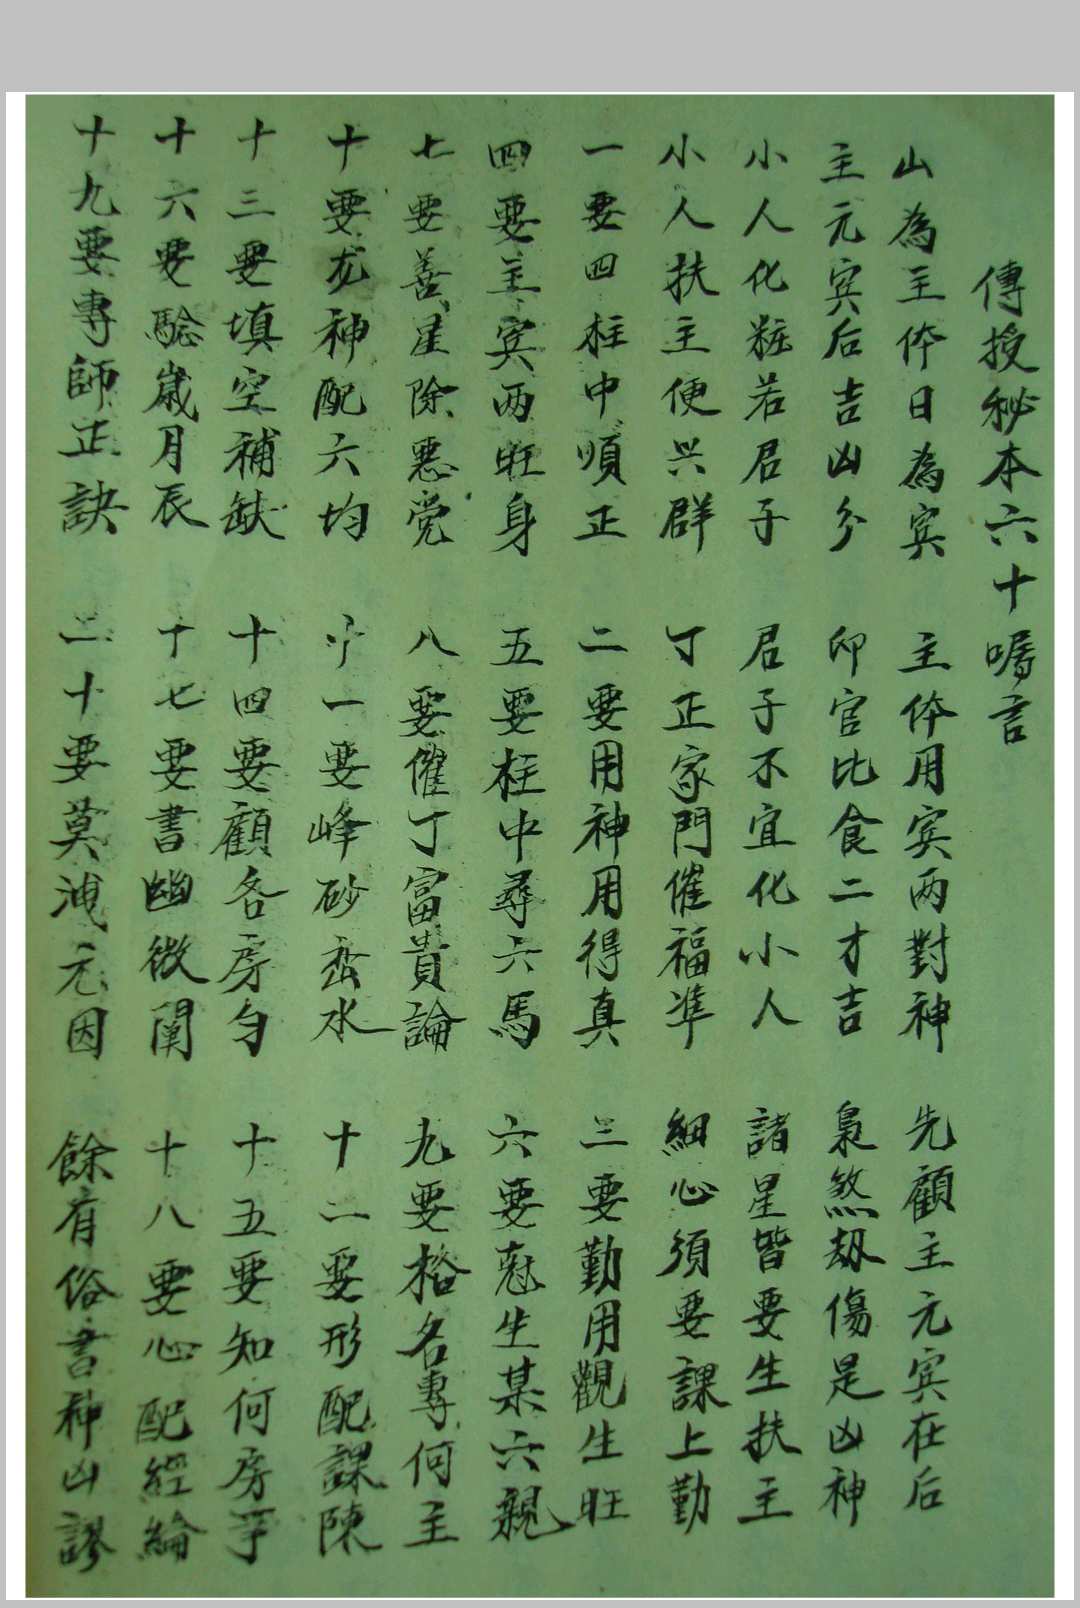 傳授秘本六十囑言
山為主体日為宾 主体用宾两對神 先顧主元宾在后
主元宾后吉凶分 印官比食二才吉 梟煞刼傷是凶神
小人化粧若君子 君子不宜化小人 諸星皆要生扶主
小人扶主便兴群 丁正家門催福凖 細心須要課上勤
一要四柱中順正 二要用神用得真 三要勤用觀生旺
四要主宾两旺身 五要柱中尋六馬 六要尅生某六親
七要善星除惡党 八要催丁富貴論 九要格名專何主
十要龙神配六均 十一要峰砂峦水 十二要形配課陳
十三要填空補缺 十四要顧各房匀 十五要知何房爭
十六要騐歲月辰 十七要書幽微闡 十八要心配經綸
十九要專師正訣 二十要莫洩元因 餘有俗書神凶謬